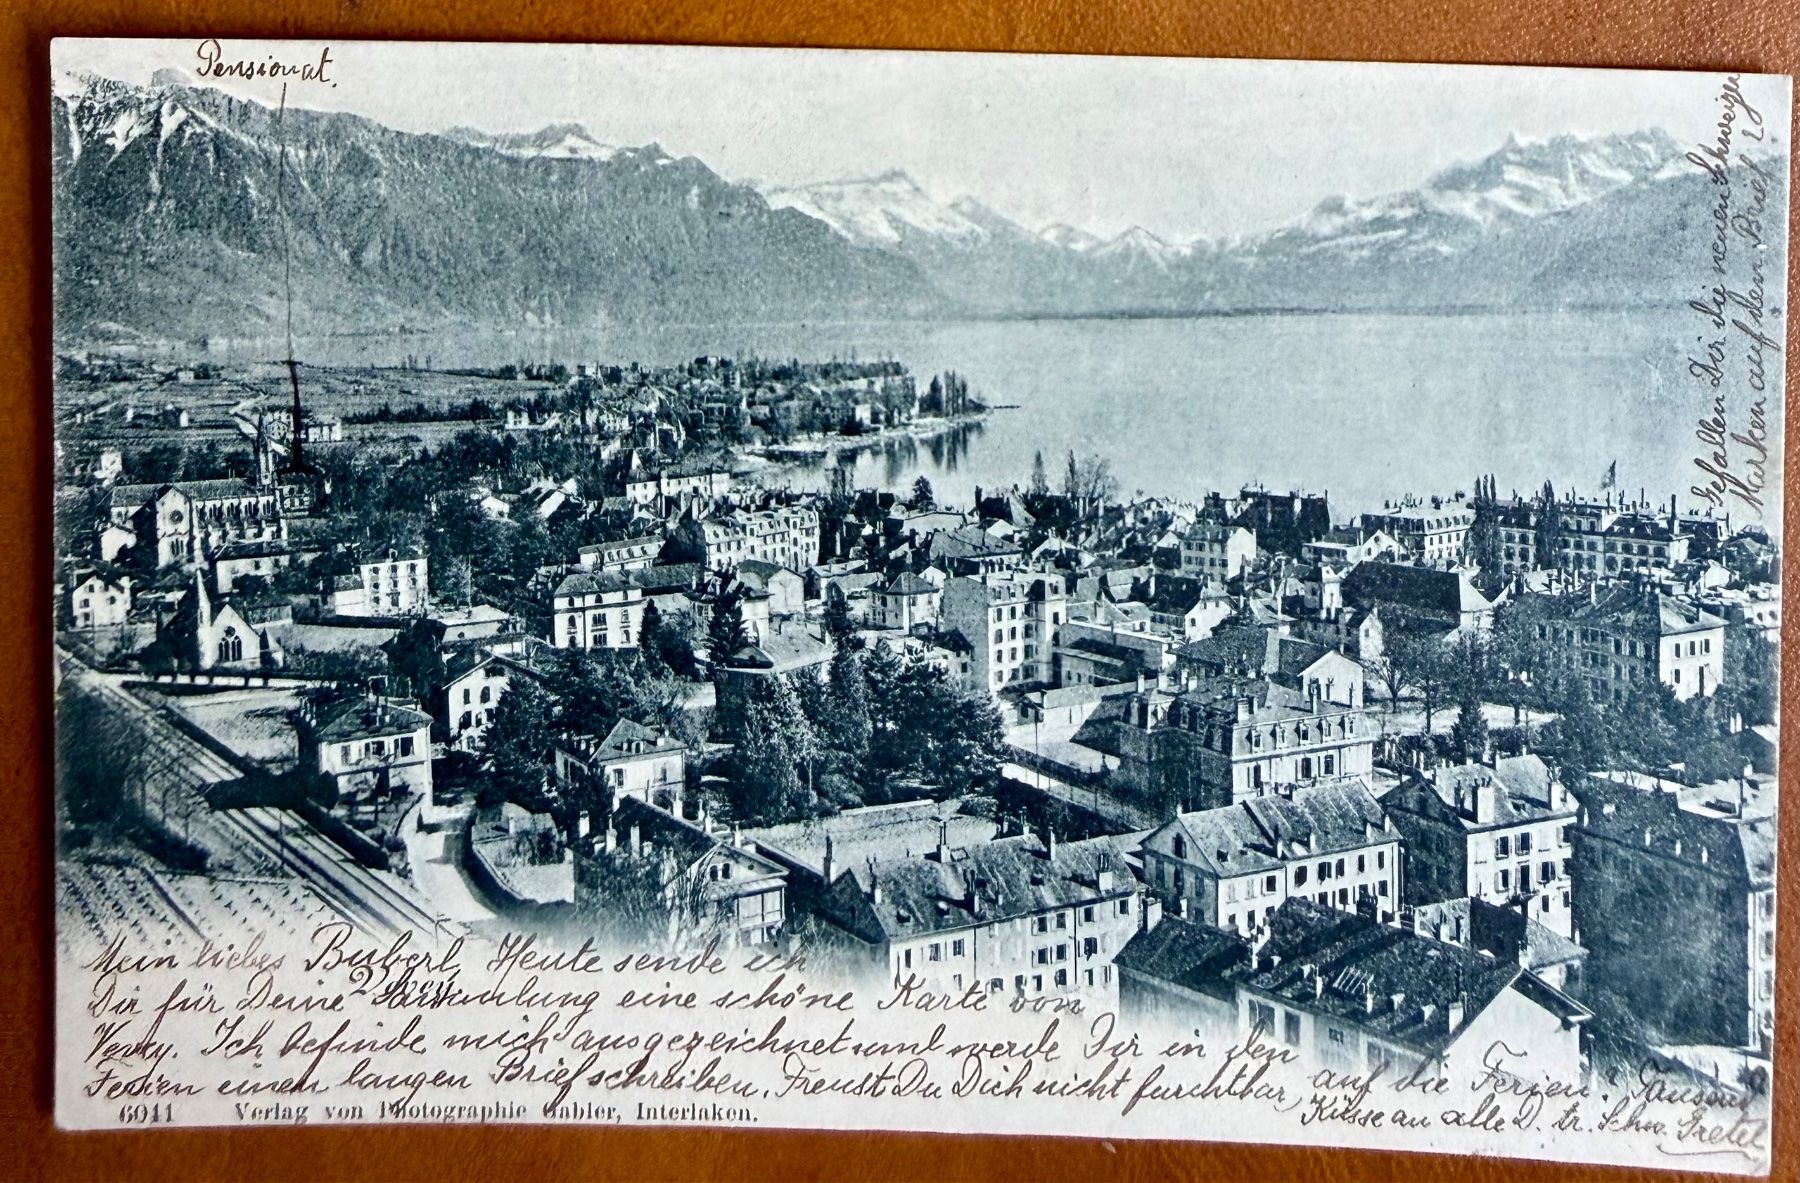 Pensionat.
Gefallen Dir die neuen Schweizer
Marken auf dem Brief 20
Mein liebes Buberl, Heute sende ich
Dir für Deine Sammlung eine schöne Karte von
Vevey. Ich befinde mich ausgezeichnet und werde Dir in den
Ferien einen langen Brief schreiben. Freust Du Dich nicht furchtbar auf die Ferien? Tausend
Küsse an alle D. tr. Schw. Gretel
6011 Verlag von Photographie Gabler, Interlaken.